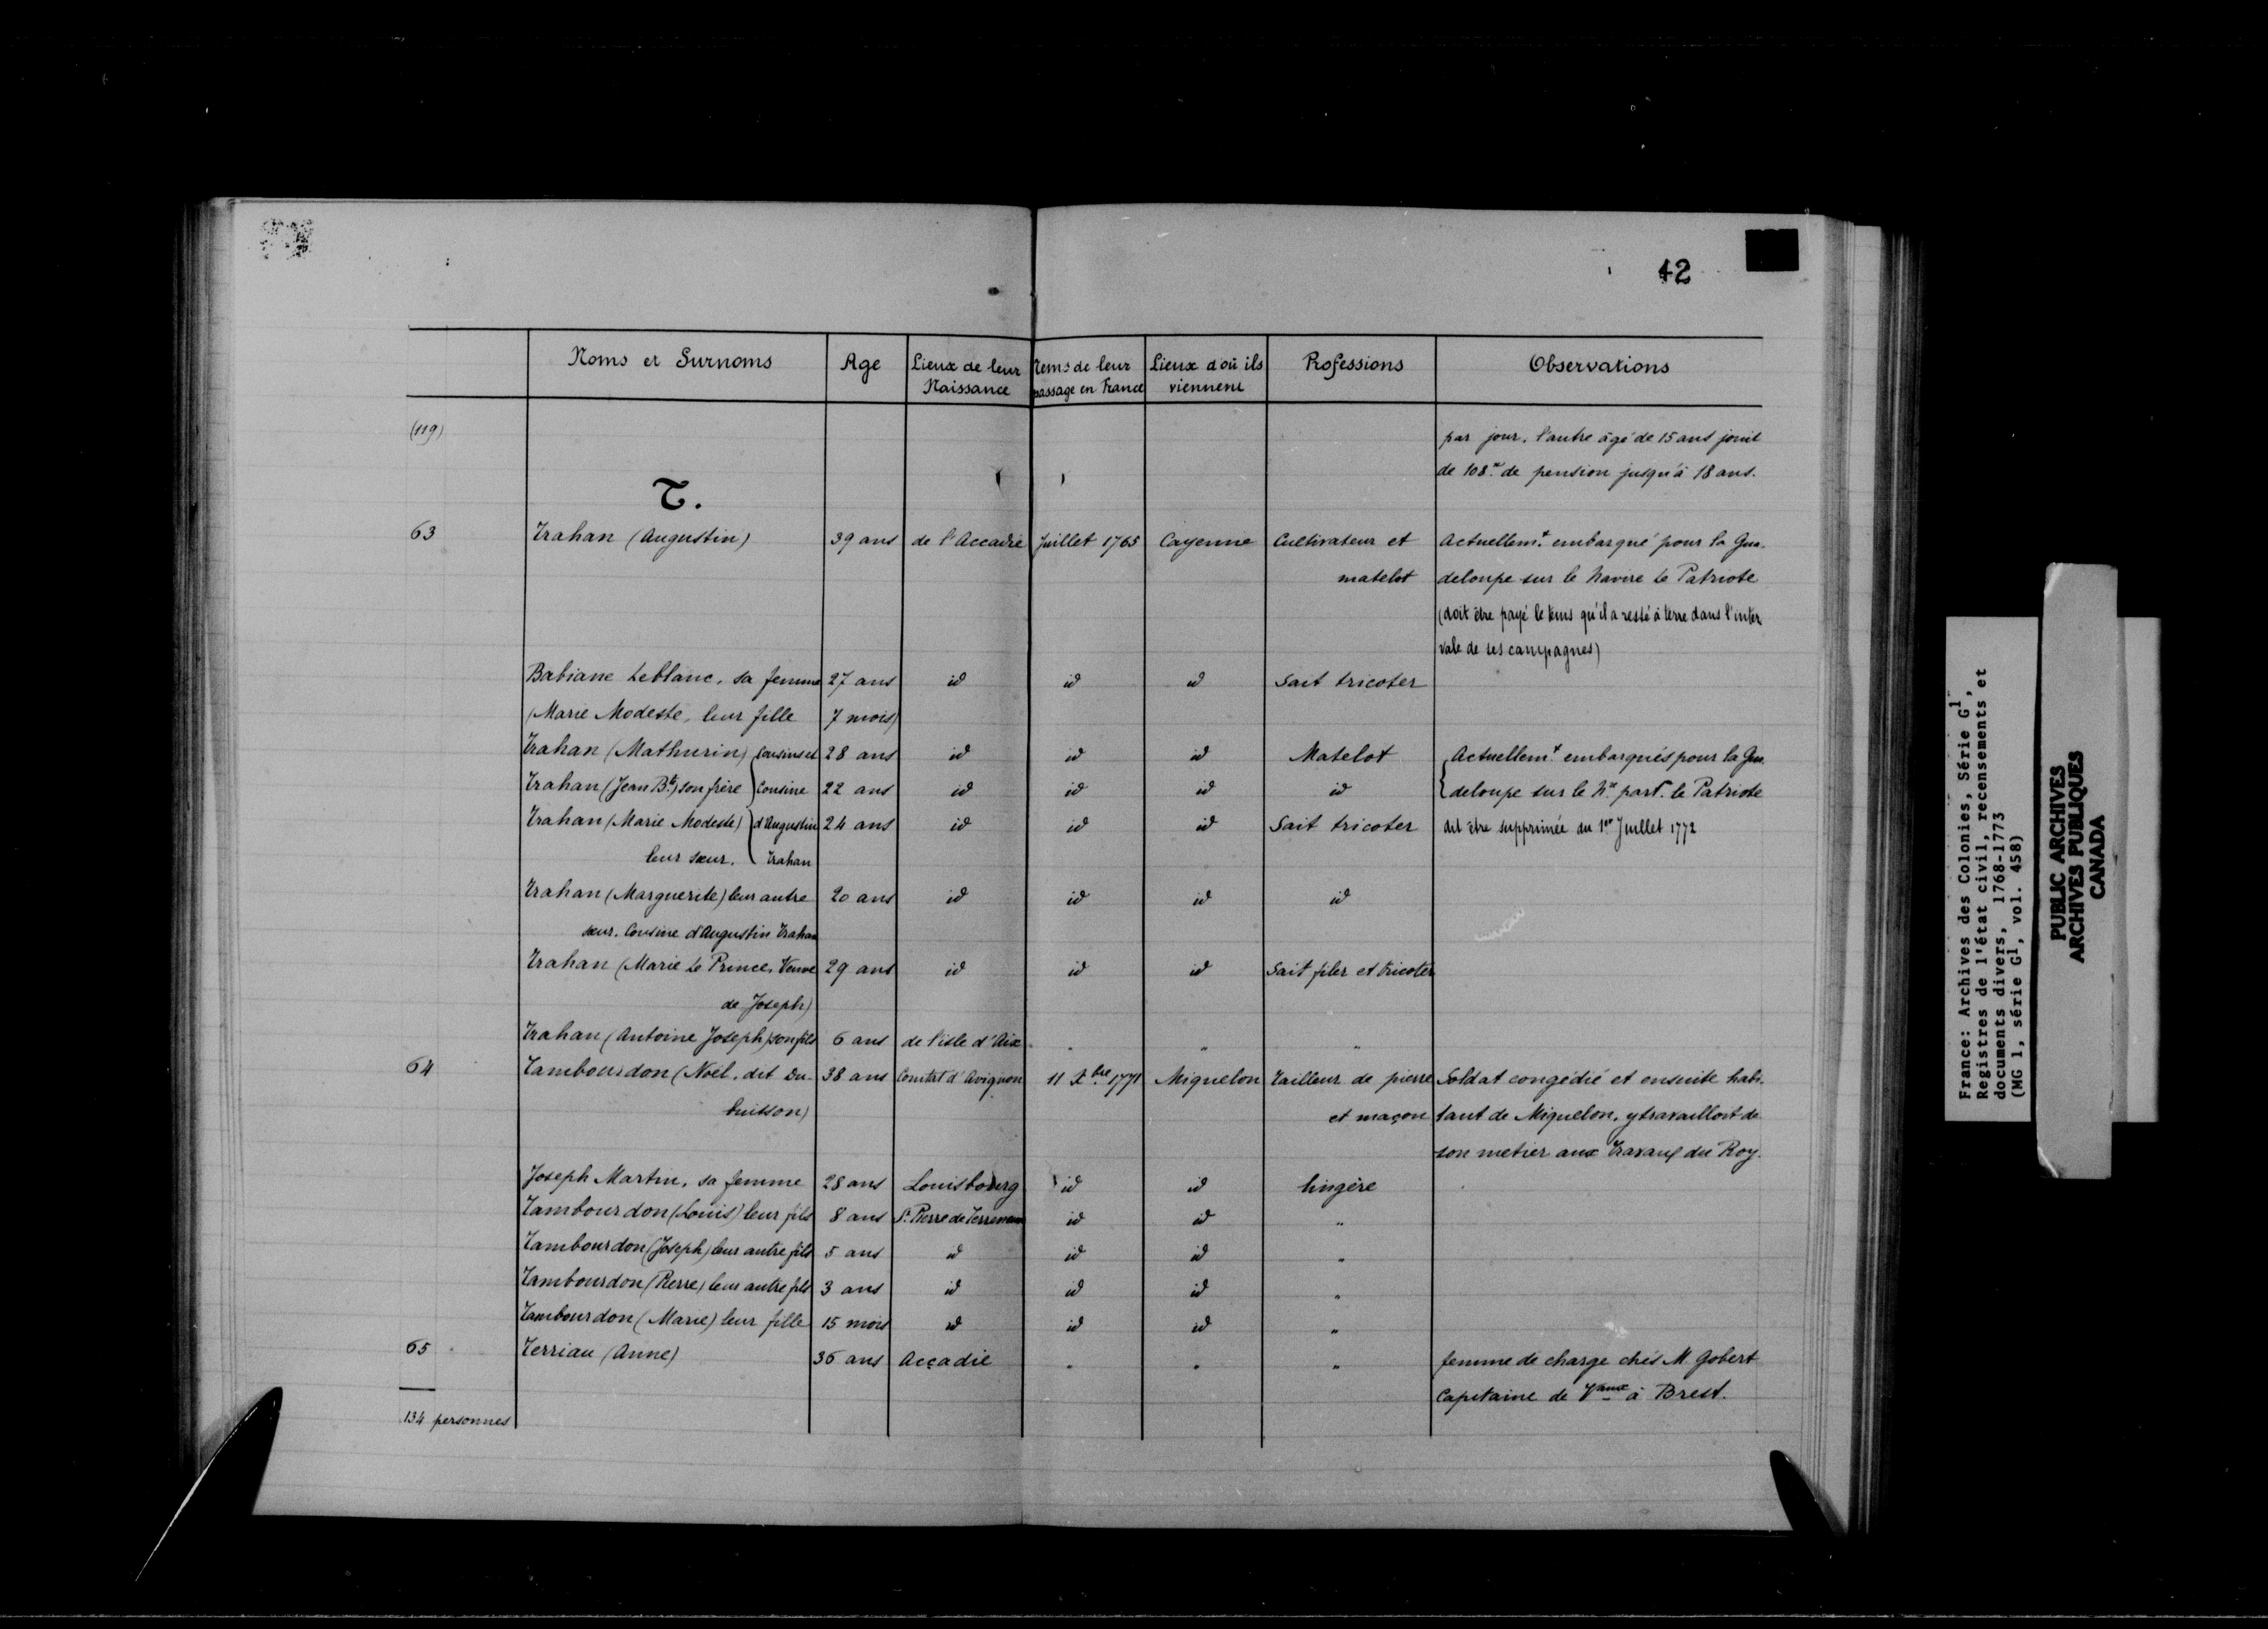 42
Noms et Surnoms Age Lieux de leur Naissance Tems de leur passage en France Lieux d'où ils viennent Professions Observations
(119) par jour, l'autre âgé de 15 ans jouit
de 108.tt de pension jusqu'à 18 ans.
T.
63 Trahan (Augustin) 39 ans de l'Accadie Juillet 1765 Cayenne Cultivateur et Actuellemt. embarqué pour la Gua-
matelot deloupe sur le Navire le Patriote
(doit être payé le tems qu'il a resté à terre dans l'inter
vale de ses campagnes)
Babiane Leblanc, sa femme 27 ans id id id Sait tricoter
(Marie Modeste, leur fille 7 mois)
Trahan (Mathurin) Cousins et 28 ans id id id Matelot Actuellemt. embarqués pour la Gua
Trahan (Jean Bte) son frère Cousine 22 ans id id id id deloupe sur le Nre part. le Patriote
Trahan (Marie Modeste) d'Augustin 24 ans id id id Sait tricoter dit être supprimée du 1er Juillet 1772
leur sœur. Trahan
Trahan (Marguerite) leur autre 20 ans id id id id
sœur. Cousine d'Augustin Trahan
Trahan (Marie Le Prince, Veuve 29 ans id id id Sait filer et tricoter
de Joseph)
Trahan (Antoine Joseph) son fils 6 ans de l'isle d'Aix " " "
64 Tambourdon (Noël, dit Du- 38 ans Comtat d'Avignon 11 Xbre 1771 Miquelon Tailleur de pierre Soldat congédié et ensuite habi-
buisson) et maçon tant de Miquelon, y travailloit de
son metier aux Travaux du Roy.
Joseph Martin, sa femme 28 ans Louisbourg id id lingère
Tambourdon (Louis) leur fils 8 ans St. Pierre de Terreneuve id id "
Tambourdon (Joseph) leur autre fils 5 ans id id id "
Tambourdon (Pierre) leur autre fils 3 ans id id id "
Tambourdon (Marie) leur fille 15 mois id id id "
65 Terriau (Anne) 36 ans Accadie " " " femme de charge chés M Gobert
Capitaine de Vaux à Brest.
134 personnes
France: Archives des Colonies, Série G1,
Registres de l'état civil, recensements et
documents divers, 1768-1773
(MG 1, série G1, vol. 458)
PUBLIC ARCHIVES
ARCHIVES PUBLIQUES
CANADA